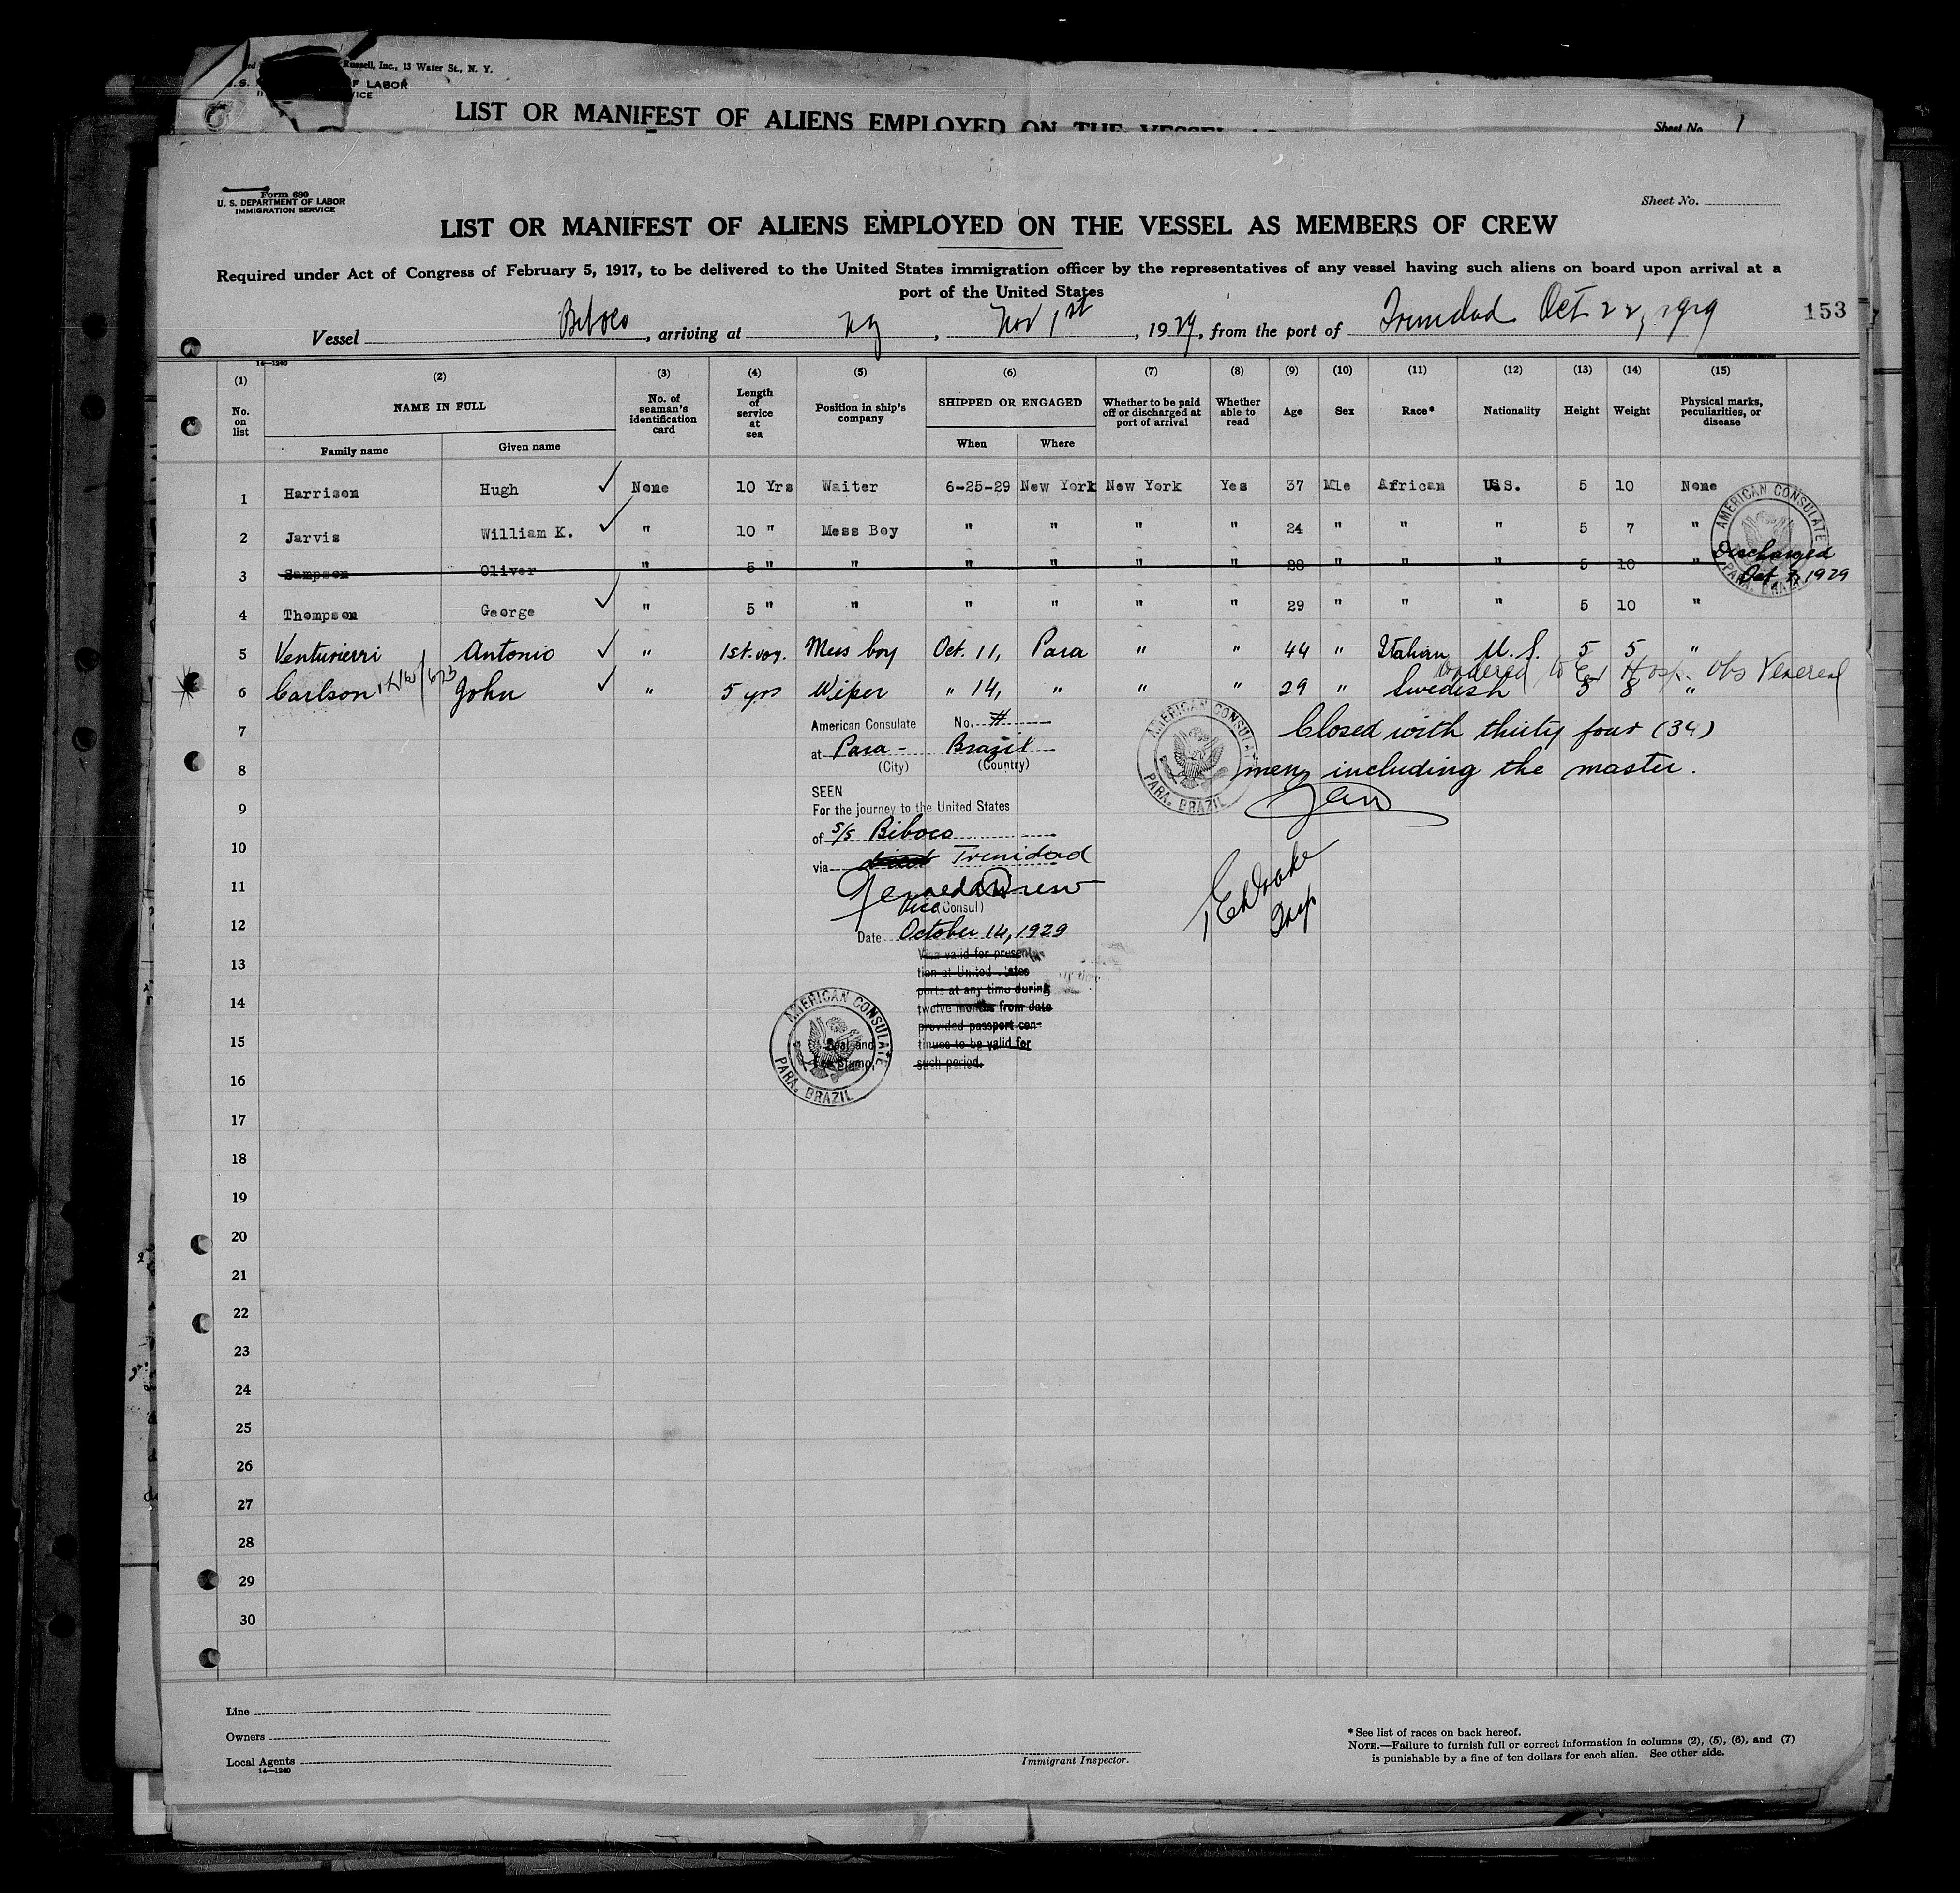 Russell, Inc., 13 Water St., N. Y.
F LABOR
VICE
LIST OR MANIFEST OF ALIENS EMPLOYED ON THE VESSEL
Sheet No. 1
Form 680
U. S. DEPARTMENT OF LABOR
IMMIGRATION SERVICE
Sheet No.
LIST OR MANIFEST OF ALIENS EMPLOYED ON THE VESSEL AS MEMBERS OF CREW
Required under Act of Congress of February 5, 1917, to be delivered to the United States immigration officer by the representatives of any vessel having such aliens on board upon arrival at a
port of the United States
153
Vessel Biboco, arriving at NY, Nov 1st, 1929, from the port of Trinidad Oct 22, 1929
14—1240
(1) (2) (3) (4) (5) (6) (7) (8) (9) (10) (11) (12) (13) (14) (15)
No. on list
NAME IN FULL
Family name
Given name
No. of seaman's identification card
Length of service at sea
Position in ship's company
SHIPPED OR ENGAGED
When
Where
Whether to be paid off or discharged at port of arrival
Whether able to read
Age
Sex
Race*
Nationality
Height
Weight
Physical marks, peculiarities, or disease
1 Harrison Hugh ✓ None 10 Yrs Waiter 6-25-29 New York New York Yes 37 Mle African US. 5 10 None
2 Jarvis William K. ✓ " 10 " Mess Boy " " " " 24 " " " 5 7 "
3 Sampson Oliver " 5 " " " " " " 28 " " " 5 10 "
AMERICAN CONSULATE
PARA. BRAZIL
Discharged
Oct. 7, 1929
4 Thompson George ✓ " 5 " " " " " " 29 " " " 5 10 "
5 Venturierri Antonio ✓ " 1st. voy. Mess boy Oct. 11, Para " " 44 " Italian U. S. 5 5 "
Ordered to Hosp. Obs Venereal
6 Carlson John ✓ " 5 yrs Wiper " 14, " " " 29 " Swedish 5 8 "
673
7
8
9
10
11
12
13
14
15
16
17
18
19
20
21
22
23
24
25
26
27
28
29
30
American Consulate No. #
at Para - Brazil
(City) (Country)
SEEN
For the journey to the United States
of S/S Biboco
via Trinidad
Gerald A Drew
Vice Consul)
Date October 14, 1929
Visa valid for presenta-
tion at United States
ports at any time during
twelve months from date
provided passport con-
tinues to be valid for
such period.
AMERICAN CONSULATE
Seal and
Fee Stamp.
PARA. BRAZIL
AMERICAN CONSULATE
PARA. BRAZIL
Closed with thirty four (34)
men including the master.
Insp
Line
Owners
Local Agents
14—1240
Immigrant Inspector.
* See list of races on back hereof.
NOTE.—Failure to furnish full or correct information in columns (2), (5), (6), and (7)
is punishable by a fine of ten dollars for each alien. See other side.